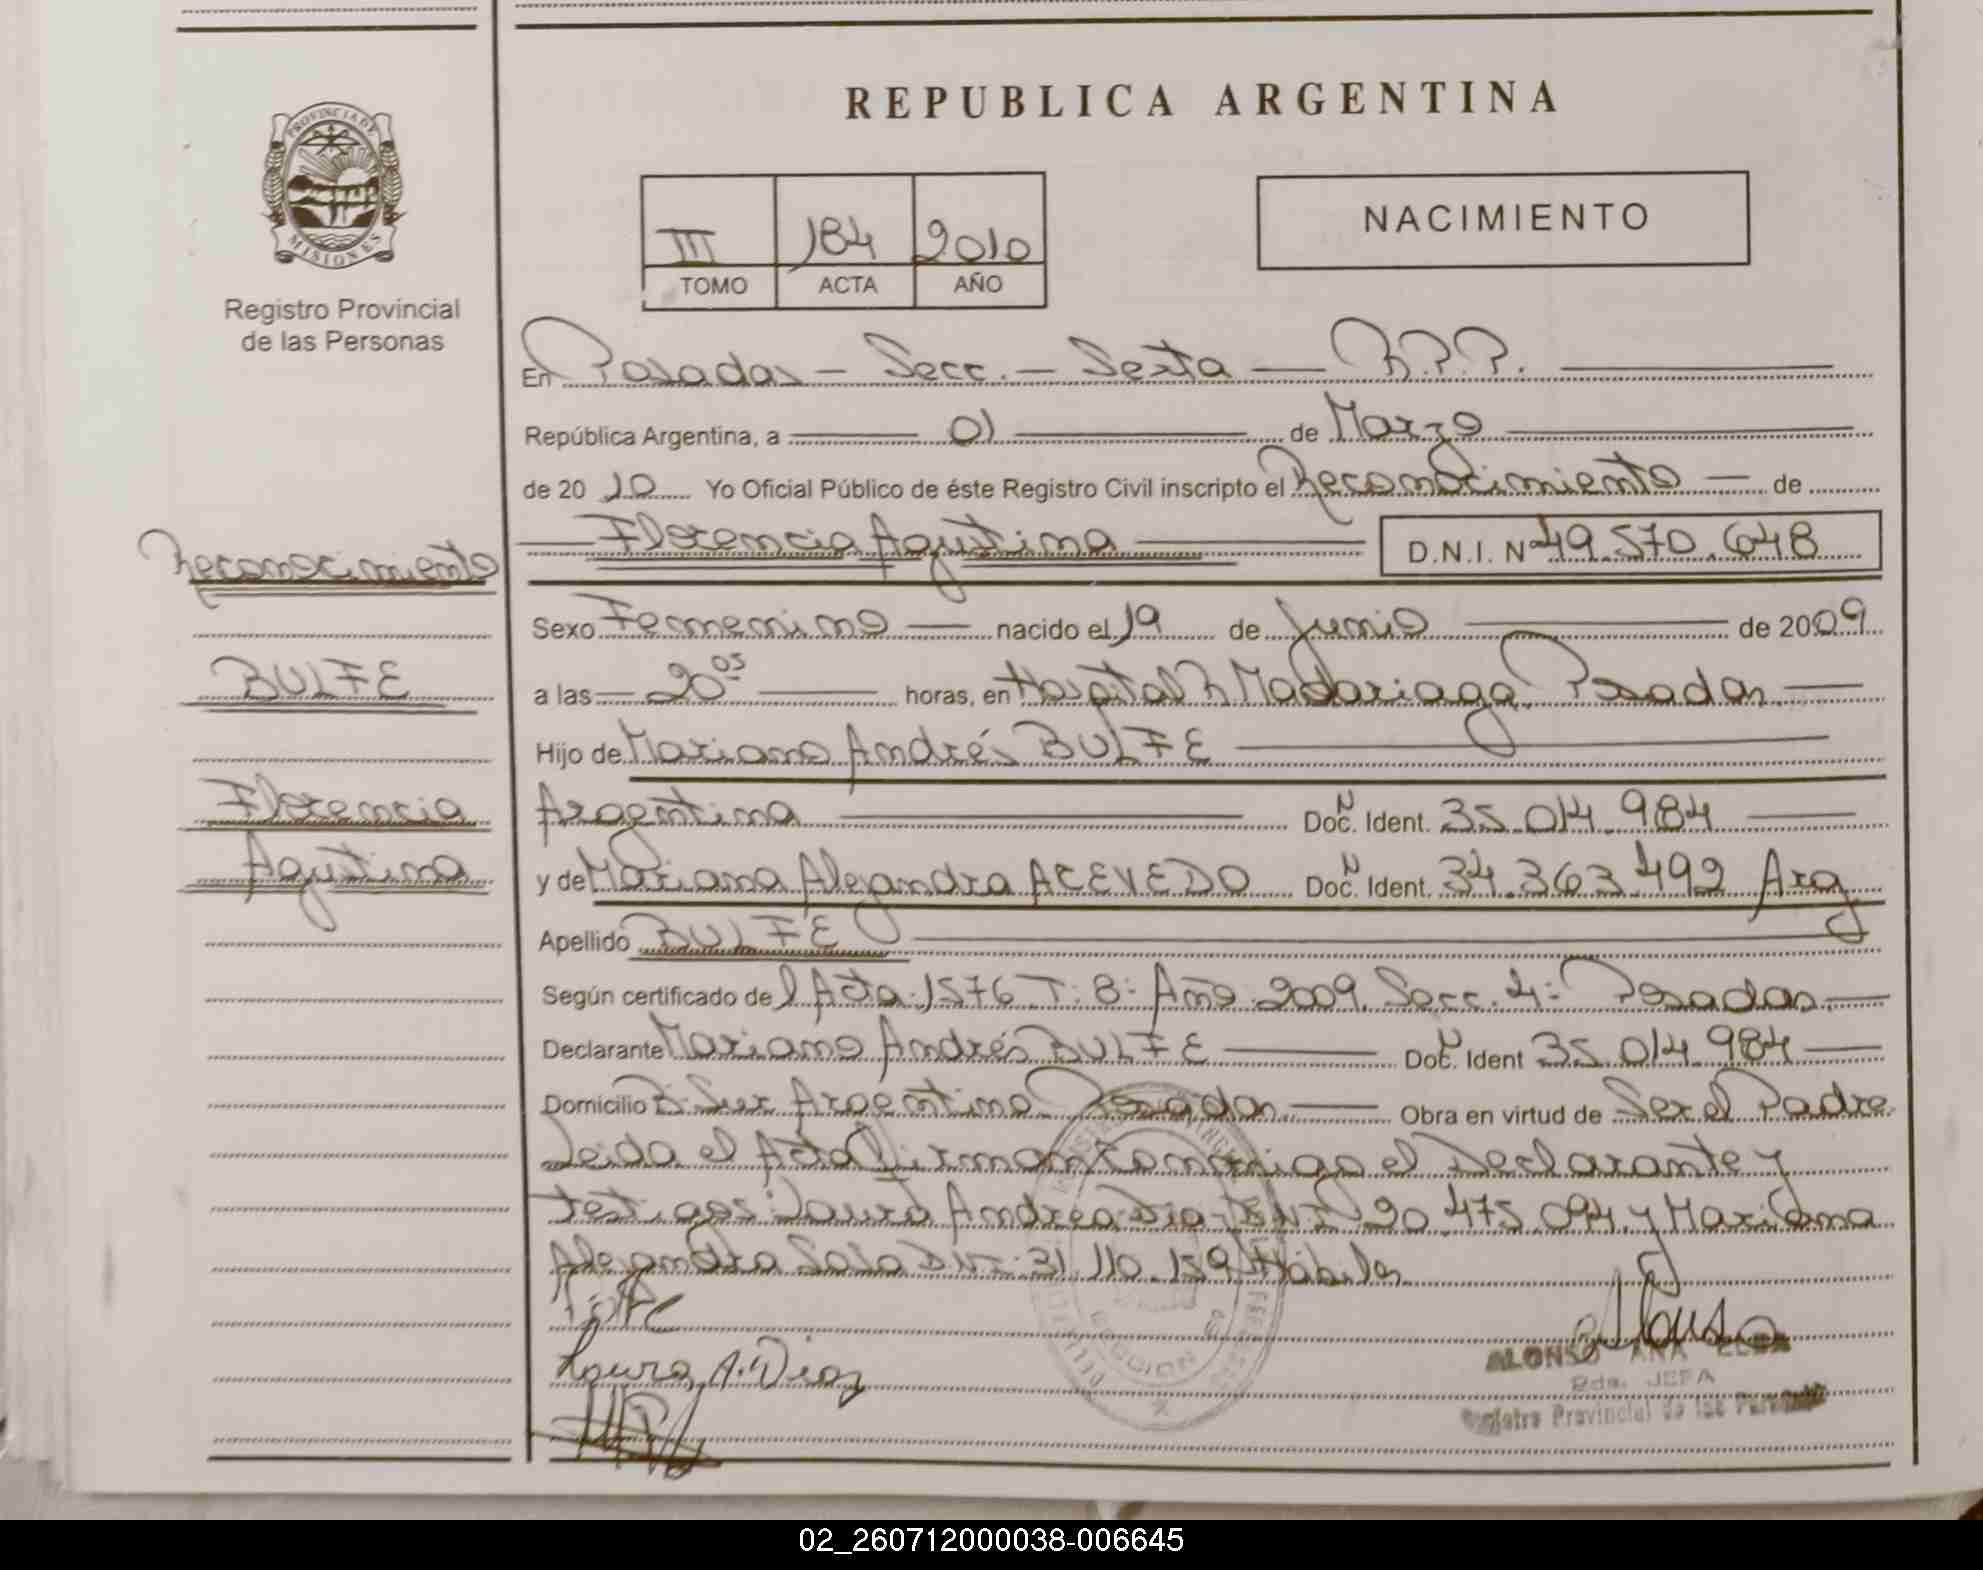 REPUBLICA ARGENTINA
PROVINCIA DE
MISIONES
Registro Provincial
de las Personas
III 184 2010
TOMO ACTA AÑO
NACIMIENTO
En Posadas - Secc. - Sexta - R.P.P.
República Argentina, a 01 de Marzo
de 20 10 Yo Oficial Público de éste Registro Civil inscripto el Reconocimiento - de
Florencia Agustina D.N.I. Nº 49.570.648
Reconocimiento
BULFE
Florencia
Agustina
Sexo Femenino nacido el 19 de Junio de 2009
a las 20 05 horas, en Hospital R Madariaga, Posadas.
Hijo de Mariano Andrés BULFE
Argentina Doc. N Ident. 35.014.984
y de Mariana Alejandra ACEVEDO Doc. N Ident. 34.363.492 Arg
Apellido BULFE
Según certificado del Acta: 1576 T: 8: Año: 2009. Secc. 4: Posadas.
Declarante Mariano Andrés BULFE Doc. N Ident 35.014.984
Domicilio Bº Sur Argentino Posadas Obra en virtud de Ser el Padre
Leido el Acta Firman conmigo el Declarante y
testigos: Andrea 20.475.094 y
Alejandra 31.110.159 Hábiles
Laura A. Diaz
ALONSO ANA ELBA
JEFA
Registro Provincial de las Personas
02_260712000038-006645